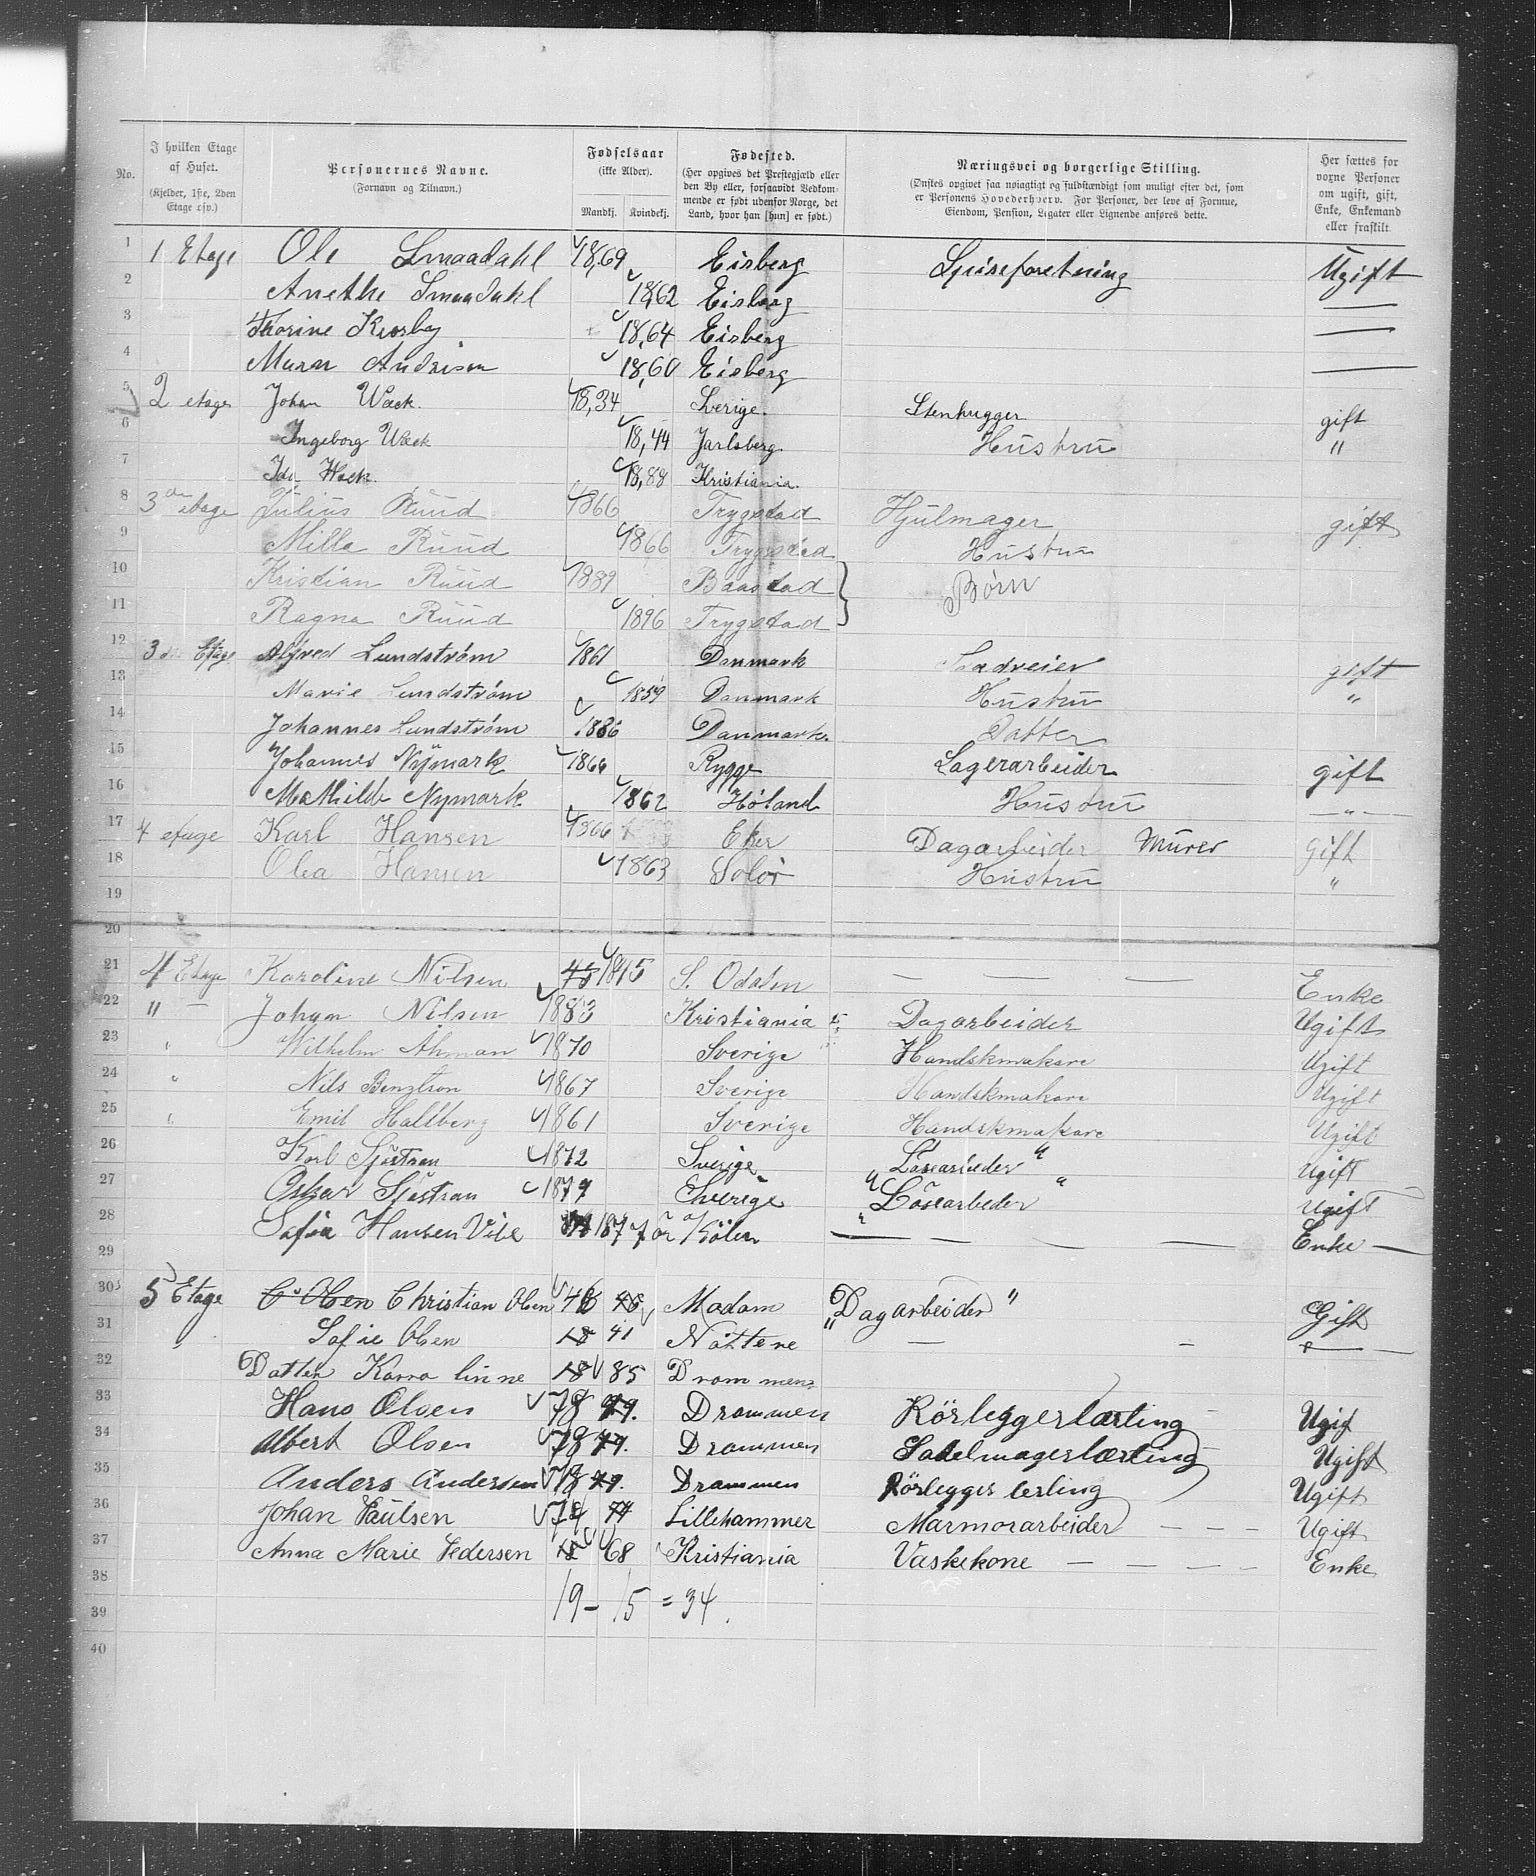 No.
I hvilken Etage af Huset. (Kjelder, 1ste, 2den Etage osv.)
Personernes Navne. (Fornavn og Tilnavn.)
Fødselsaar (ikke Alder). Mandkj. Kvindekj.
Fødested. (Her opgives det Prestegjæld eller den By eller, forsaavidt Vedkommende er født udenfor Norge, det Land, hvor han [hun] er født.)
Næringsvei og borgerlige Stilling. (Ønskes opgivet saa nøiagtigt og fuldstændigt som muligt efter det, som er Personens Hovederhverv. For Personer, der leve af Formue, Eiendom, Pension, Legater eller Lignende anføres dette.
Her sættes for voxne Personer om ugift, gift, Enke, Enkemand eller fraskilt.
1 1 Etage Ole Smaadahl 18,69 Eisberg Spiseforetning Ugift
2 Anethe Smaadahl 1862 Eisberg —
3 Thorine 18,64 Eisberg —
4 Andrisen 18,60 Eisberg —
5 2 etage Johan Wæk. 18,34 Sverige. Stenhugger gift
6 Ingeborg Wæk 18,44 Jarlsberg. Hustru "
7 Ida Wæk. 18,88 Kristiania.
8 3die etage Julius Ruud 1866 Trygstad Hjulmager gift
9 Milla Ruud 1866 Trygstad Hustru
10 Kristian Ruud 1889 Baastad } Børn
11 Ragna Ruud 1896 Trygstad
12 3die Etage Alfred Lundström 1861 Danmark gift
13 Marie Lundström 1859 Danmark Hustru "
14 Johannes Lundström 1886 Danmark. Datter
15 Johannes Nÿmark 1866 Rygge Lagerarbeider gift
16 Mathilde Nymark 1862 Høland Hustru — " —
17 4 etage Karl Hansen 1866 Eker Dagarbeider Murer gift
18 Olea Hansen 1863 Solör Hustru "
19
20
21 4 Etage Karoline Nilsen 45 1845 S. Odalen — — — Enke
22 " — Johan Nilsen 1883 Kristiania Dagarbeider Ugift
23 " Wilhelm Åhman 1870 Sverige Handskmakare Ugift
24 " Nils Bengtson 1867 Sverige Handskmakare Ugift
25 " Emil Hallberg 1861 Sverige Handskmakare Ugift
26 Karl Sjöstran 1872 Sverige „ Lösearbieder " Ugift
27 Oskar Sjöstran 1877 Sverige „ Lösearbeder " Ugift
28 Sofia Hansen 1877 — — — — Enke —
29
30 5 Etage C Olsen Christian Olsen 46 46 Modum „Dagarbeider" Gift
31 Sofie Olsen 18 41 — -
32 Datter Karro linne 18 85 Drommen
33 Hans Olsen 78 79. Drammen Rörleggerlærling Ugif
34 Albert Olsen 78 Drammen Sadelmagerlærling Ugift
35 Anders Andersen 78 79. Drammen Rörlegger lerling Ugift
36 Johan Paulsen 74 74 Lillehammer Marmorarbeider — - - Ugift
37 Anna Marie Pedersen 18 68 Kristiania Vaskekone — - - - Enke
38
39 19 - 15 = 34.
40